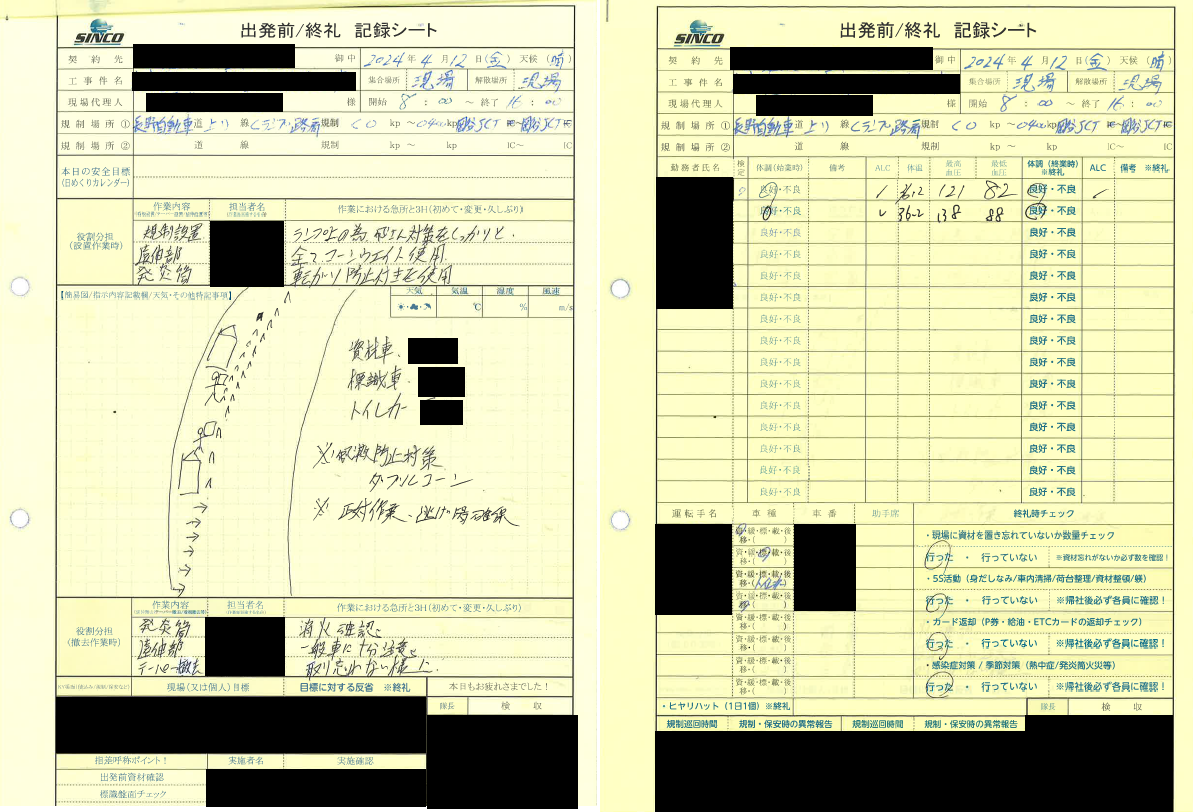 出発前/終礼 記録シート
SINCO
契約先 御中 2024年 4月 12日(金) 天候(晴)
工事件名 集合場所 現場 解散場所 現場
現場代理人 様 開始 8:00 ~ 終了 16:00
規制場所① 長野自動車道 上り 線 Cランプ 路肩 規制 C0 kp ~ 0400 kp 岡谷JCT IC~ 岡谷JCT IC
規制場所② 道 線 規制 kp ~ kp IC~ IC
本日の安全目標
(日めくりカレンダー)
役割分担
(設置作業時)
作業内容 担当者名 作業における急所と3H(初めて・変更・久しぶり)
規制設置 ランプ上の為、飛散対策をしっかりと
直伸部 全てコーンウエイト使用
発炎筒 転がり防止付きを使用
【簡易図/指示内容記載欄/天気・その他特記事項】
天気 気温 湿度 風速
℃ % m/s
資材車
標識車
トイレカー
※飛散防止対策
ダブルコーン
※正対作業、逃げ場確保
役割分担
(撤去作業時)
作業内容 担当者名 作業における急所と3H(初めて・変更・久しぶり)
発炎筒 消火確認
直伸部 一般車に十分注意
テーパー撤去 取り忘れない様に
現場(又は個人)目標 目標に対する反省 ※終礼 本日もお疲れさまでした!
隊長 検収
指差呼称ポイント! 実施者名 実施確認
出発前資材確認
標識盤面チェック
出発前/終礼 記録シート
SINCO
契約先 御中 2024年 4月 12日(金) 天候(晴)
工事件名 集合場所 現場 解散場所 現場
現場代理人 様 開始 8:00 ~ 終了 16:00
規制場所① 長野自動車道 上り 線 Cランプ 路肩 規制 C0 kp ~ 0400 kp 岡谷JCT IC~ 岡谷JCT IC
規制場所② 道 線 規制 kp ~ kp IC~ IC
勤務者氏名 検定 体調(始業時) 備考 ALC 体温 最高血圧 最低血圧 体調(終業時)※終礼 ALC 備考 ※終礼
良好・不良 36.2 121 82 良好・不良
良好・不良 36.2 138 88 良好・不良
良好・不良 良好・不良
良好・不良 良好・不良
良好・不良 良好・不良
良好・不良 良好・不良
良好・不良 良好・不良
良好・不良 良好・不良
良好・不良 良好・不良
良好・不良 良好・不良
良好・不良 良好・不良
良好・不良 良好・不良
良好・不良 良好・不良
良好・不良 良好・不良
良好・不良 良好・不良
運転手名 車種 車番 助手席 終礼時チェック
資・緩・標・載・後
移・( )
・現場に資材を置き忘れていないか数量チェック
資・緩・標・載・後
移・( )
行った ・ 行っていない ※資材忘れがないか必ず数を確認!
資・緩・標・載・後
移・(トイレカー)
・5S活動(身だしなみ/車内清掃/荷台整理/資材整頓/躾)
資・緩・標・載・後
移・( )
行った ・ 行っていない ※帰社後必ず各員に確認!
資・緩・標・載・後
移・( )
・カード返却(P券・給油・ETCカードの返却チェック)
資・緩・標・載・後
移・( )
行った ・ 行っていない ※帰社後必ず各員に確認!
資・緩・標・載・後
移・( )
・感染症対策/季節対策(熱中症/発炎筒火災等)
資・緩・標・載・後
移・( )
行った ・ 行っていない ※帰社後必ず各員に確認!
・ヒヤリハット(1日1個)※終礼 隊長 検収
規制巡回時間 規制・保安時の異常報告 規制巡回時間 規制・保安時の異常報告